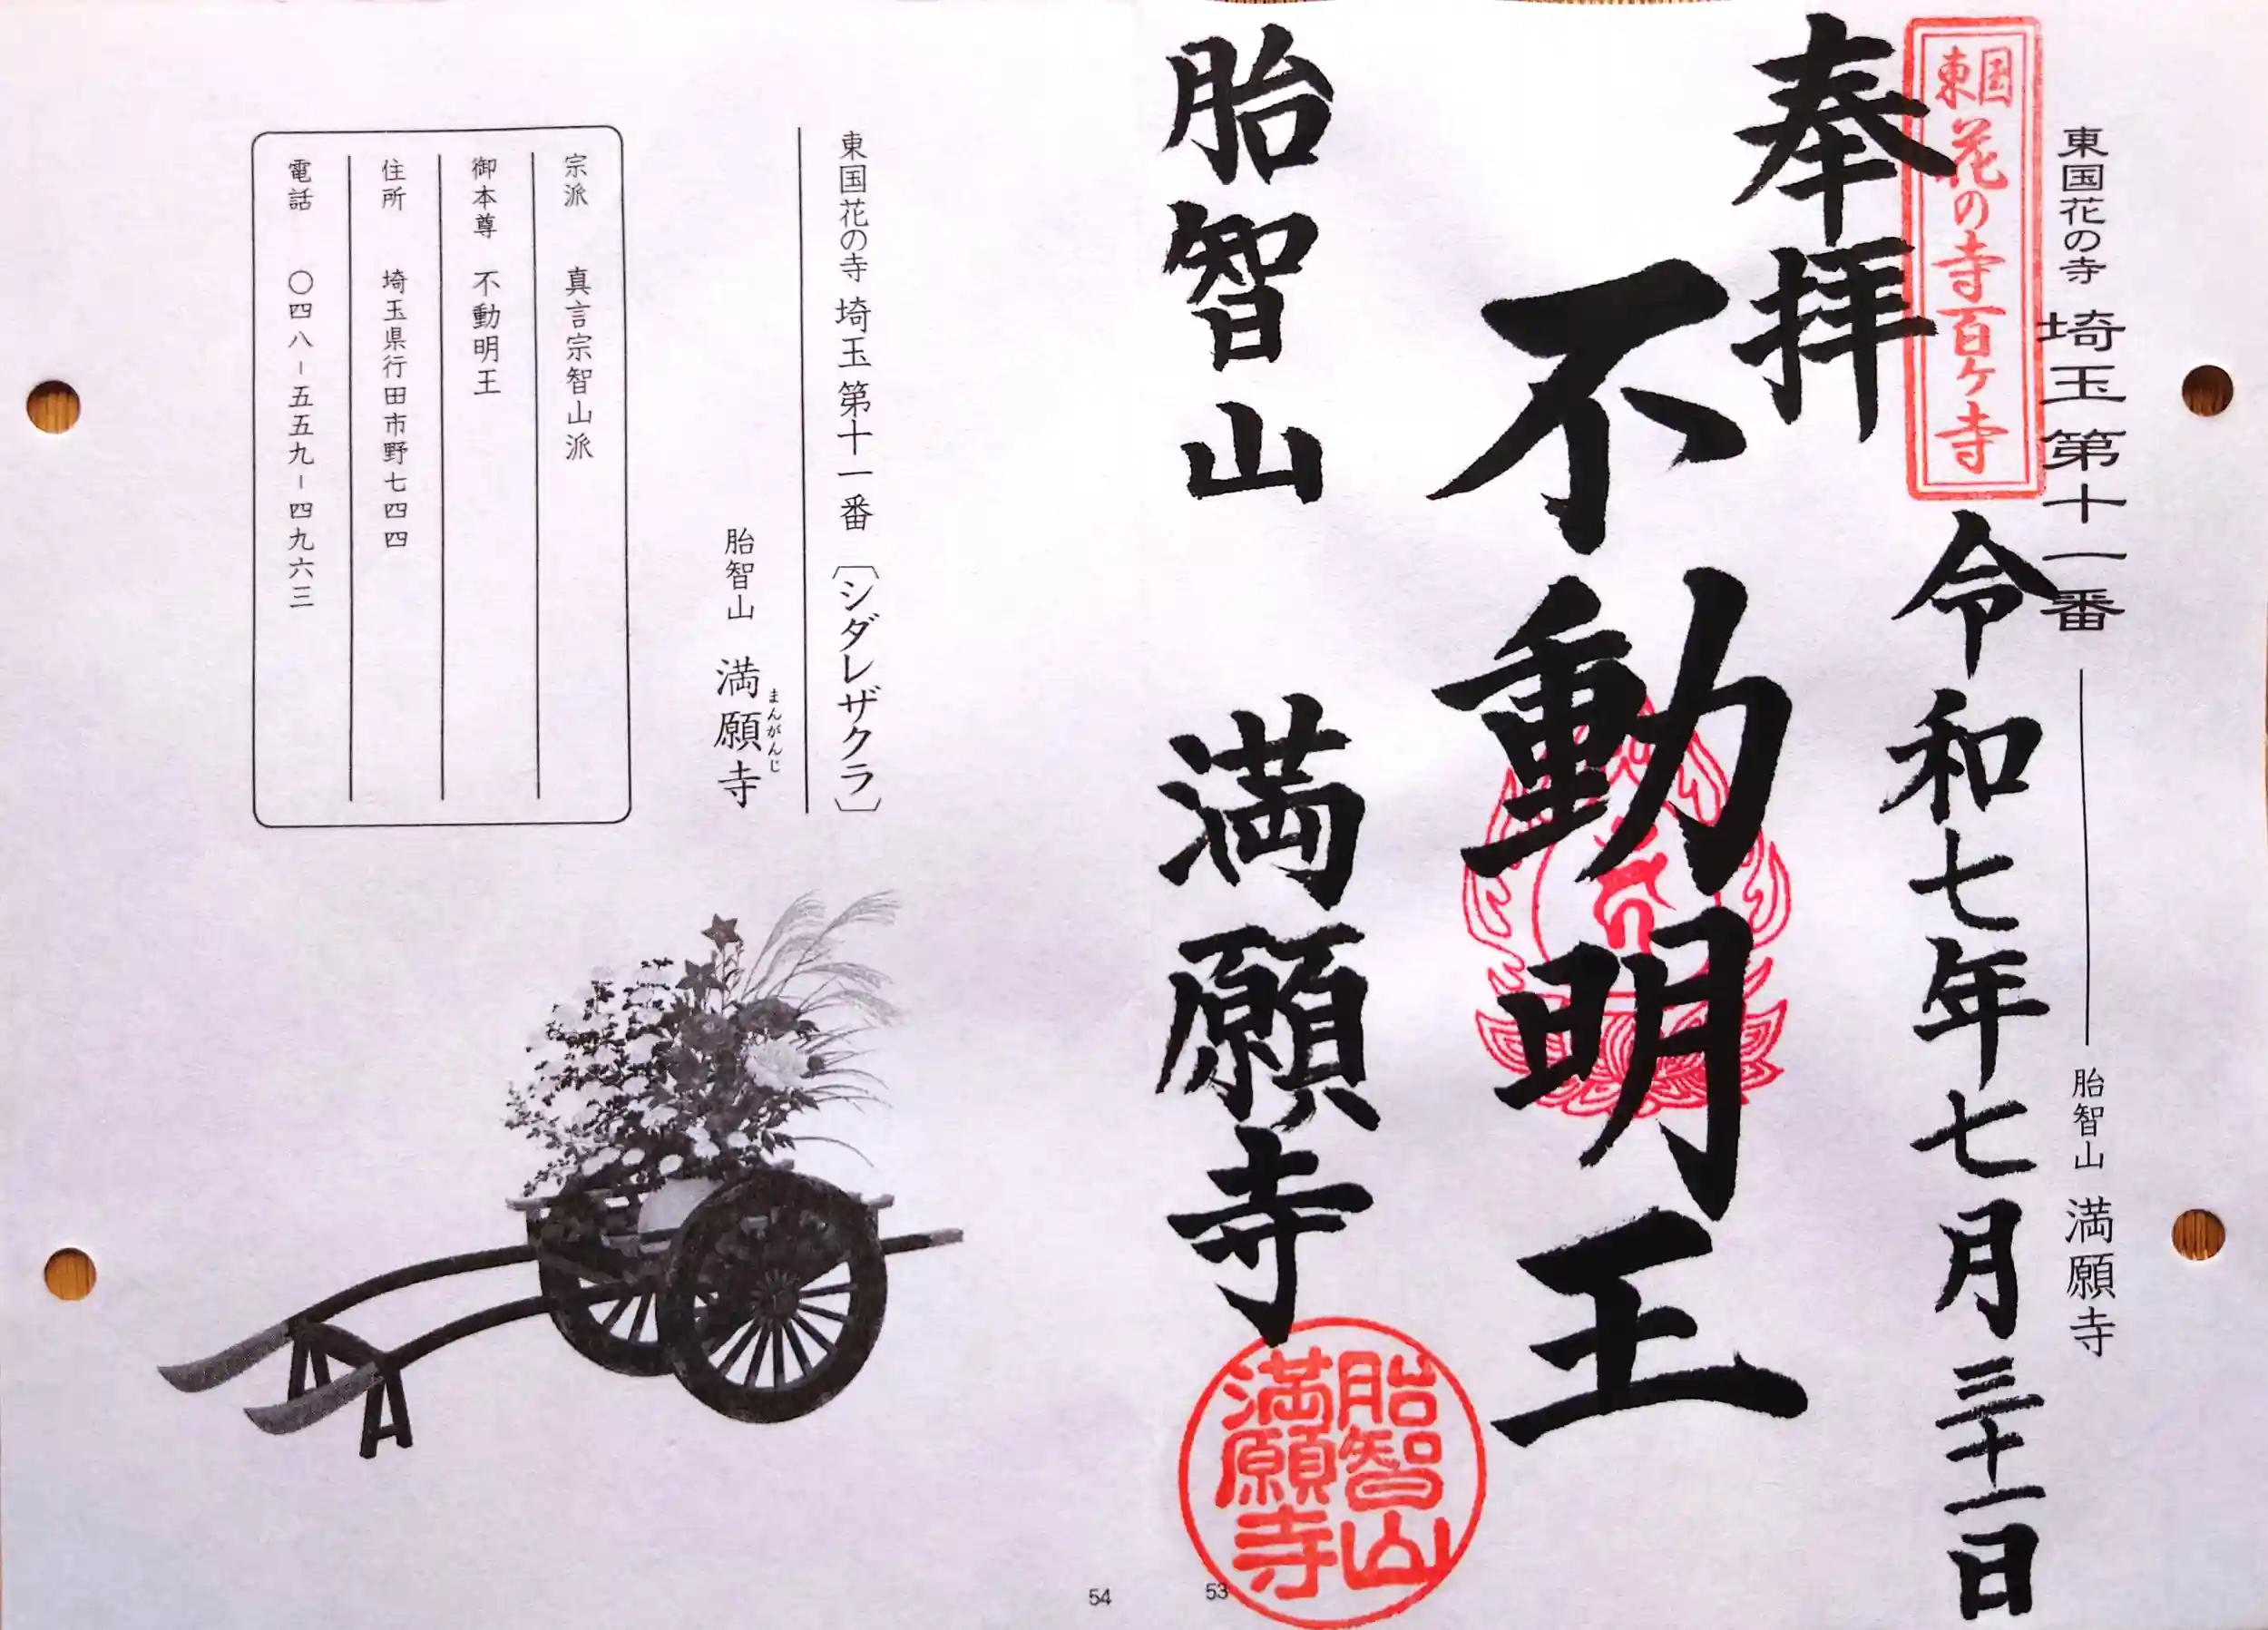 東国花の寺 埼玉第十一番 胎智山 満願寺
東国花の寺百ヶ寺
奉拝
令和七年七月三十一日
不動明王
胎智山 満願寺
胎智山
満願寺
53
東国花の寺 埼玉第十一番〔シダレザクラ〕
胎智山 満願寺
まんがんじ
宗派 真言宗智山派
御本尊 不動明王
住所 埼玉県行田市野七四四
電話 〇四八-五五九-四九六三
54